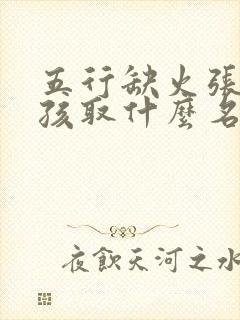 五行缺火張
孩取什麼名
夜飲天河之水